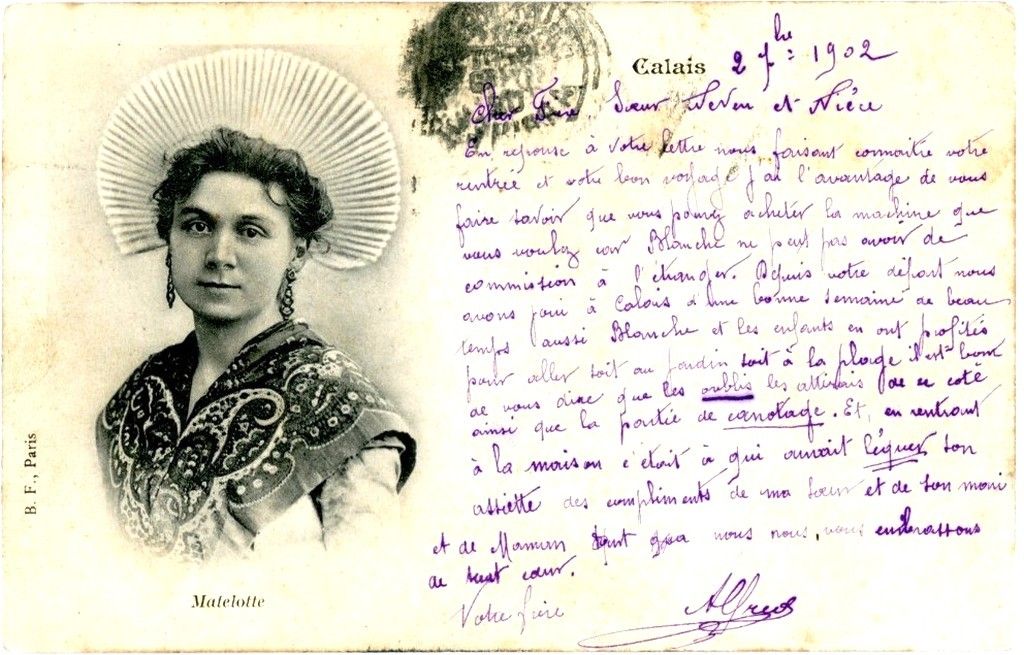 Calais 2 7bre 1902
Cher Frère, Sœur Neveu et Nièce
En reponse à votre lettre nous faisant connaitre votre
rentrée et votre bon voyage j'ai l'avantage de vous
faire savoir que vous pouvez acheter la machine que
vous voulez car Blanche ne peut pas avoir de
commission à l'étranger. Depuis votre départ nous
avons joui à Calais d'une bonne semaine de beau
temps aussi Blanche et les enfants en ont profités
pour aller soit au jardin soit à la plage il est bon
de vous dire que les oublis les attirais de ce coté
ainsi que la partie de canotage. Et, en rentrant
à la maison c'était à qui aurait léquer son
assiette des compliments de ma sœur et de son mari
et de Maman quant à nous nous vous embrassons
de tout cœur.
Votre frère Alfred
Matelotte
B. F., Paris